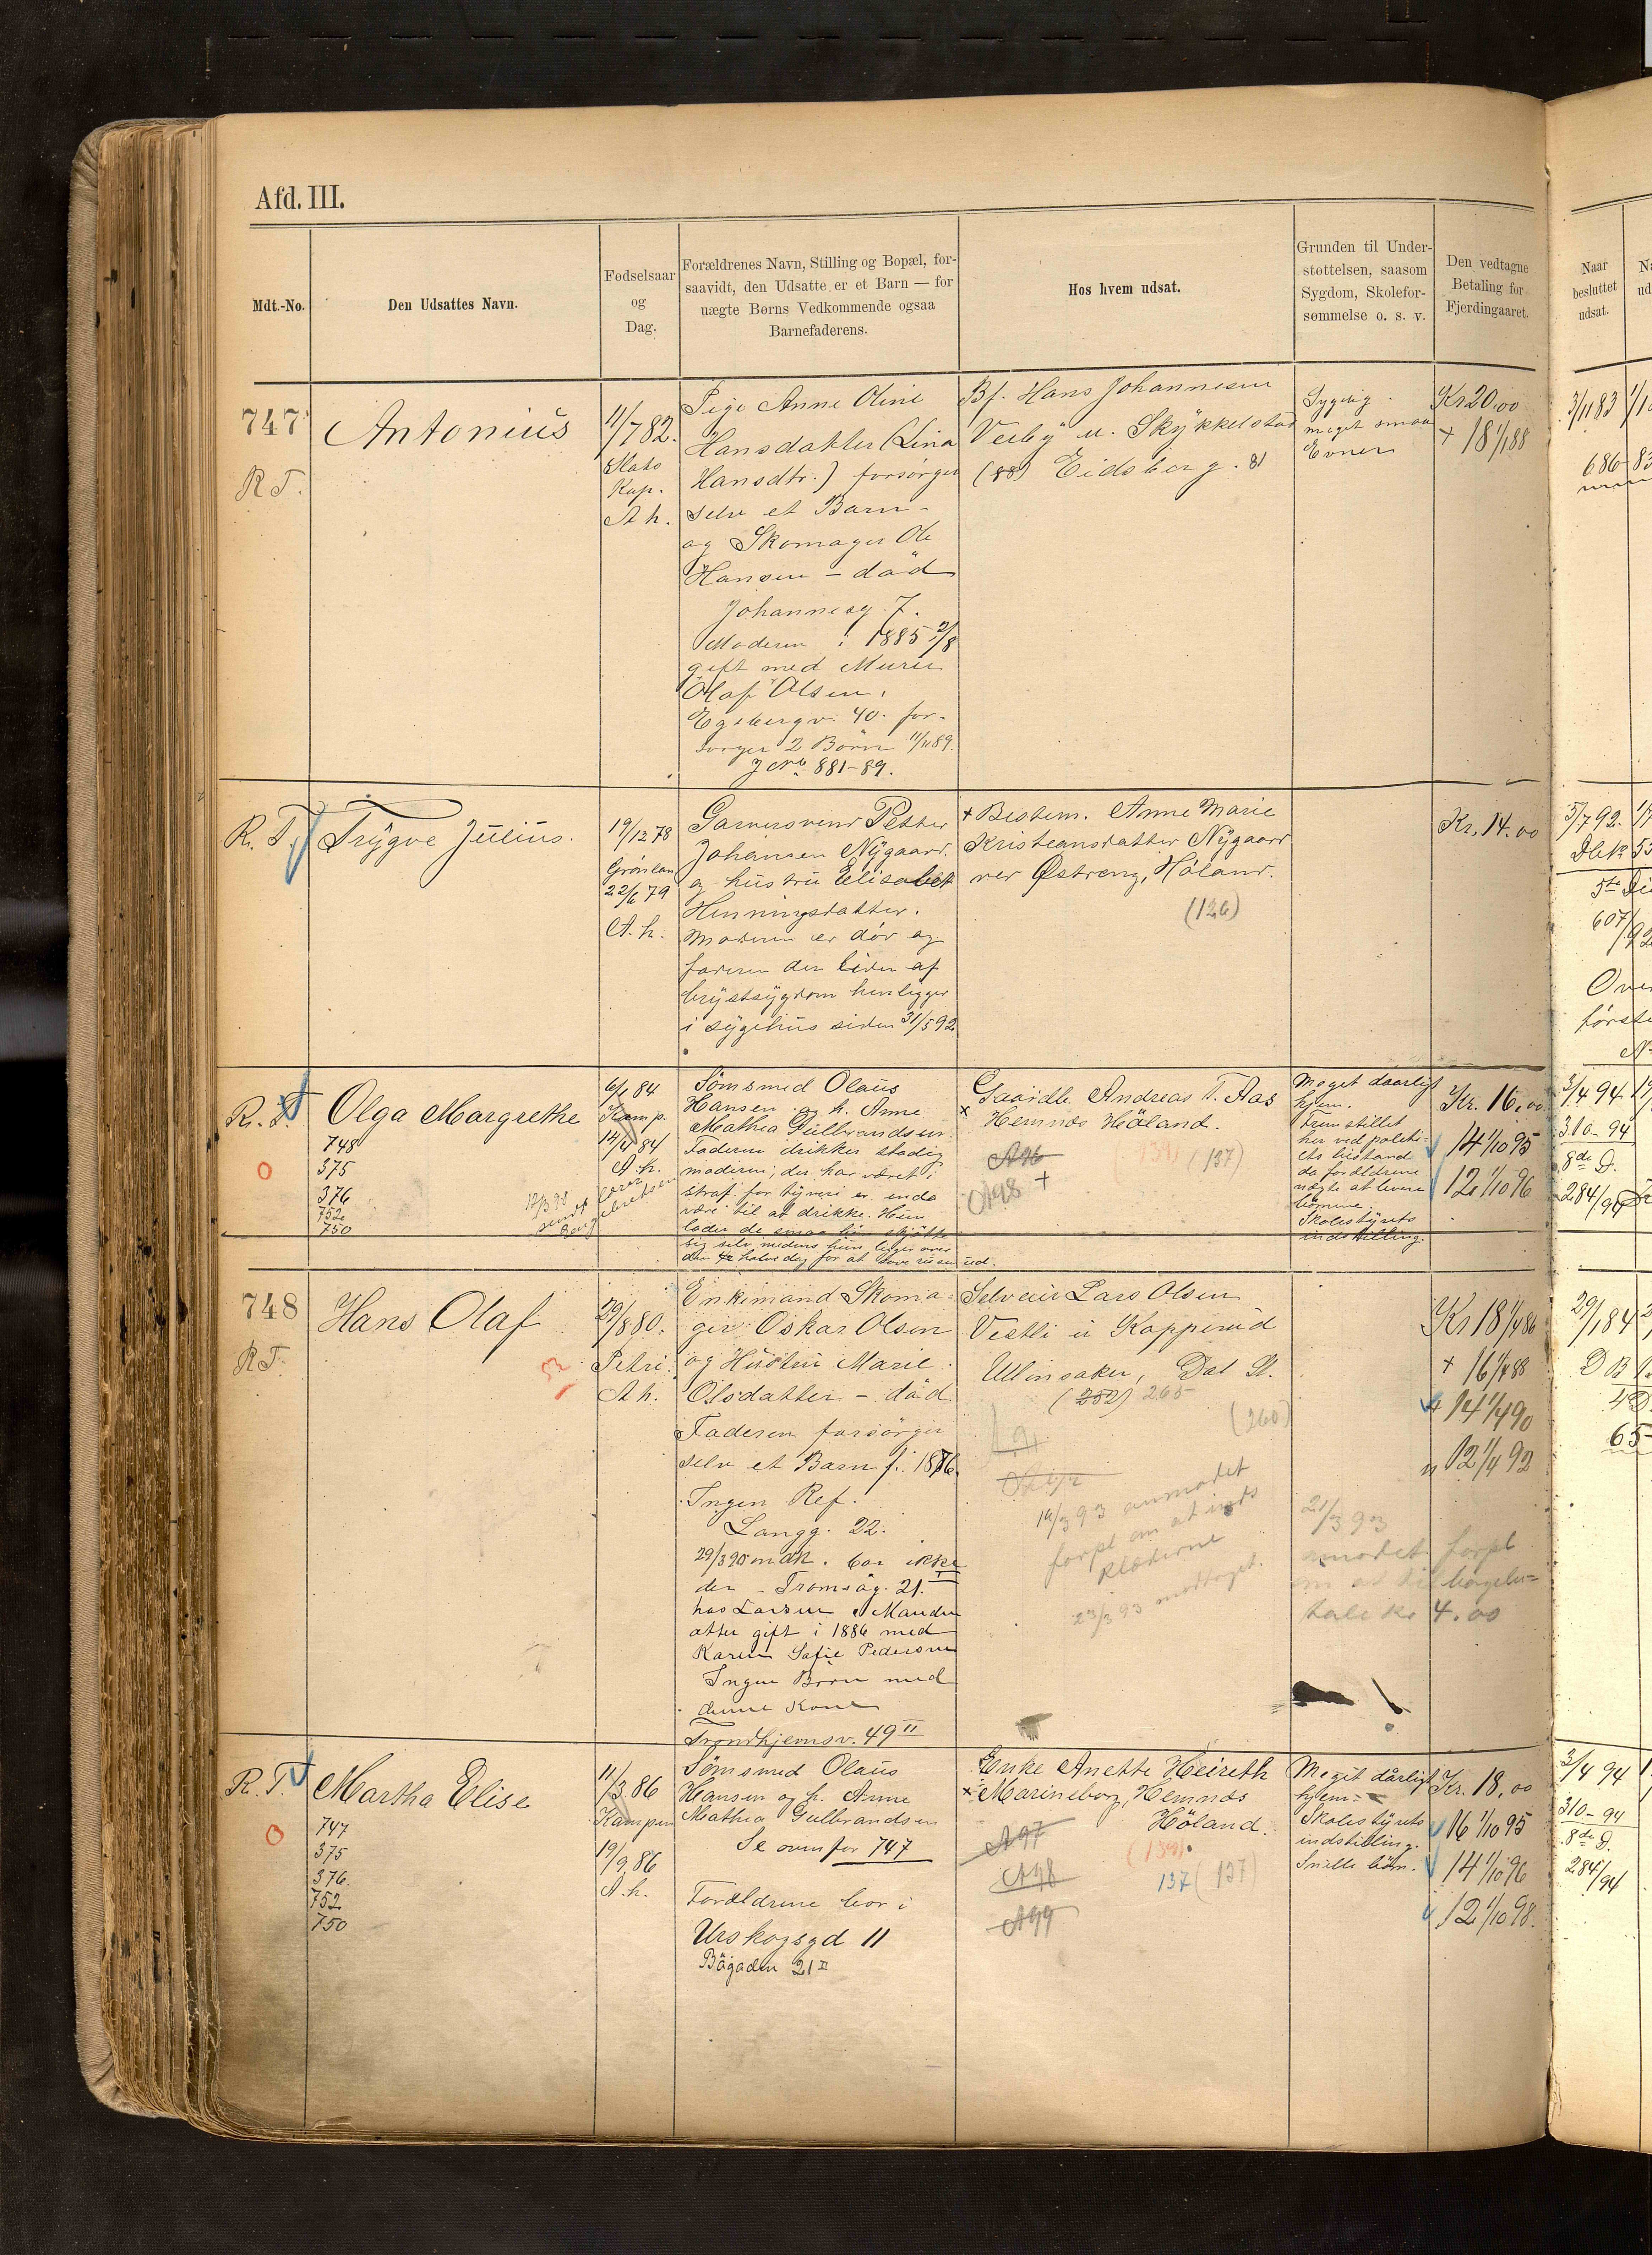 Afd. III.
Mdt.-No.
Den Udsattes Navn.
Fødselsaar
og
Dag.
Forældrenes Navn, Stilling og Bopæl, for-
saavidt, den Udsatte er et Barn — for
uægte Børns Vedkommende ogsaa
Barnefaderens.
Hos hvem udsat.
Grunden til Under-
støttelsen, saasom
Sygdom, Skolefor-
sømmelse o. s. v.
Den vedtagne
Betaling for
Fjerdingaaret.
Naar
besluttet
udsat.
747
R T.
Antonius
11/7 82.
Slots
Kap.
A h.
Pige Anne Oline
Hansdatter (Lina
Hansdtr.) forsørger
selv et Barn -
og Skomager Ole
Hansen - död
Johannesg 7.
Moderen i 1885 2/8
gift med Murer
Olaf Olsen,
Egebergv. 40. for-
sørger 2 Börn 11/11 89.
J No 881-89.
Bf. Hans Johannesen
Veiby u. Skykkelstad
(88) Eidsberg. 81
Sygelig.
meget smaa
Evner
Kr 20,00
+ 18 1/1 88
3/11 83
686
R. T.
Trygve Julius.
19/12 78
Grønland
22/6 79
A. h.
Garversvend Petter
Johansen Nygaard.
og hustru Elisabet
Henningsdatter.
Moderen er död og
faderen der lider af
brystsygdom henligger
i sygehus siden 31/5 92.
+ Bestem. Anne Marie
Kristiansdatter Nygaard
ved Østreng, Höland.
(126)
Kr. 14.00
5/7 92.
5te
607/92
først
R. T.
Olga Margrethe
748
375
376
752
750
12/3 98
sendt
6/1 84
Kamp.
14/4 84
A. h.
Sömsmed Olaus
Hansen og h. Anne
Mathea Gulbrandsen
Faderen drikker stadig
moderen, der har været i
straf for tyveri er enda
være til at drikke. Hun
lader de smaa börn skjötte
sig selv medens hun ligger over
den 1/2 halve dag for at sove rusen ud.
Gaardb. Andreas T. Aas
x Hemnes Höland.
A96
(137)
A98 +
Meget daarligt
hjem.
Fremstillet
her ved politi-
ets bistand
da forældrene
nægte at levere
börnene.
Skolestyrets
indstilling.
Kr. 16,00
14 1/10 95
12 1/10 96
3/4 94
310-94
8de D.
284/94
748
R T.
Hans Olaf
29/8 80.
Petri.
A h.
Enkemand Skoma-
ger Oskar Olsen
og Hustru Marie
Olsdatter - död
Faderen forsörger
selv et Barn f. 1876.
Ingen Ref.
Langg. 22.
29/3 90 mdk. bor ikke
der - Tromsög. 21. I
hos Larsen Manden
atter gift i 1886 med
Karen Sofie Pedersen
Ingen Börn med
denne Kone
Trondhjemsv. 49 II
Selveier Lars Olsen
Vestli u Kopperud
Ullensaker, Dal St.
(252) 265
(260)
14/3 93 anmodet
forpl om at inds
klæderne
23/3 93 modtaget.
21/3 93
anmodet forpl
om at tilbagebe-
tale kr 4.00
Kr 18 1/4 86
+ 16 1/4 88
14 1/4 90
" 12 1/4 92
29/1 84
D B
4 D
65
R. T.
Martha Elise
747
375
376.
752
750
11/3 86
Kampen
19/9 86
A. h.
Sömsmed Olaus
Hansen og h. Anne
Mathea Gulbrandsen
Se ovenfor 747
Forældrene bor i
Urskogsgd 11
Bögaden 21 II
Enke Anette Heireth
x Marineborg, Hemnes
Höland.
A97
(139)
A98
137 (137)
A99
Meget dårligt
hjem.
Skolestyrets
indstilling.
Snille börn.
Kr. 18,00
16 1/10 95
14 1/10 96
12 1/10 98.
3/4 94
310-94
8de D.
284/94